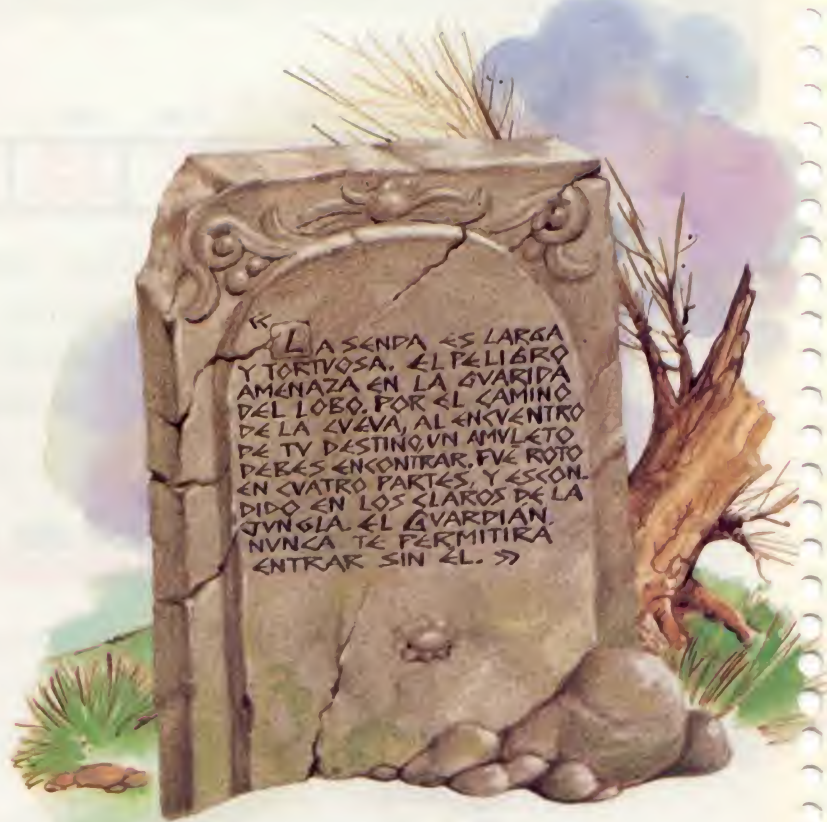 « LA SENDA ES LARGA
Y TORTUOSA. EL PELIGRO
AMENAZA EN LA GUARIDA
DEL LOBO. POR EL CAMINO
DE LA CUEVA, AL ENCUENTRO
DE TU DESTINO, UN AMULETO
DEBES ENCONTRAR. FUÉ ROTO
EN CUATRO PARTES, Y ESCON-
DIDO EN LOS CLAROS DE LA
JUNGLA. EL GUARDIAN
NUNCA TE PERMITIRA
ENTRAR SIN EL. »